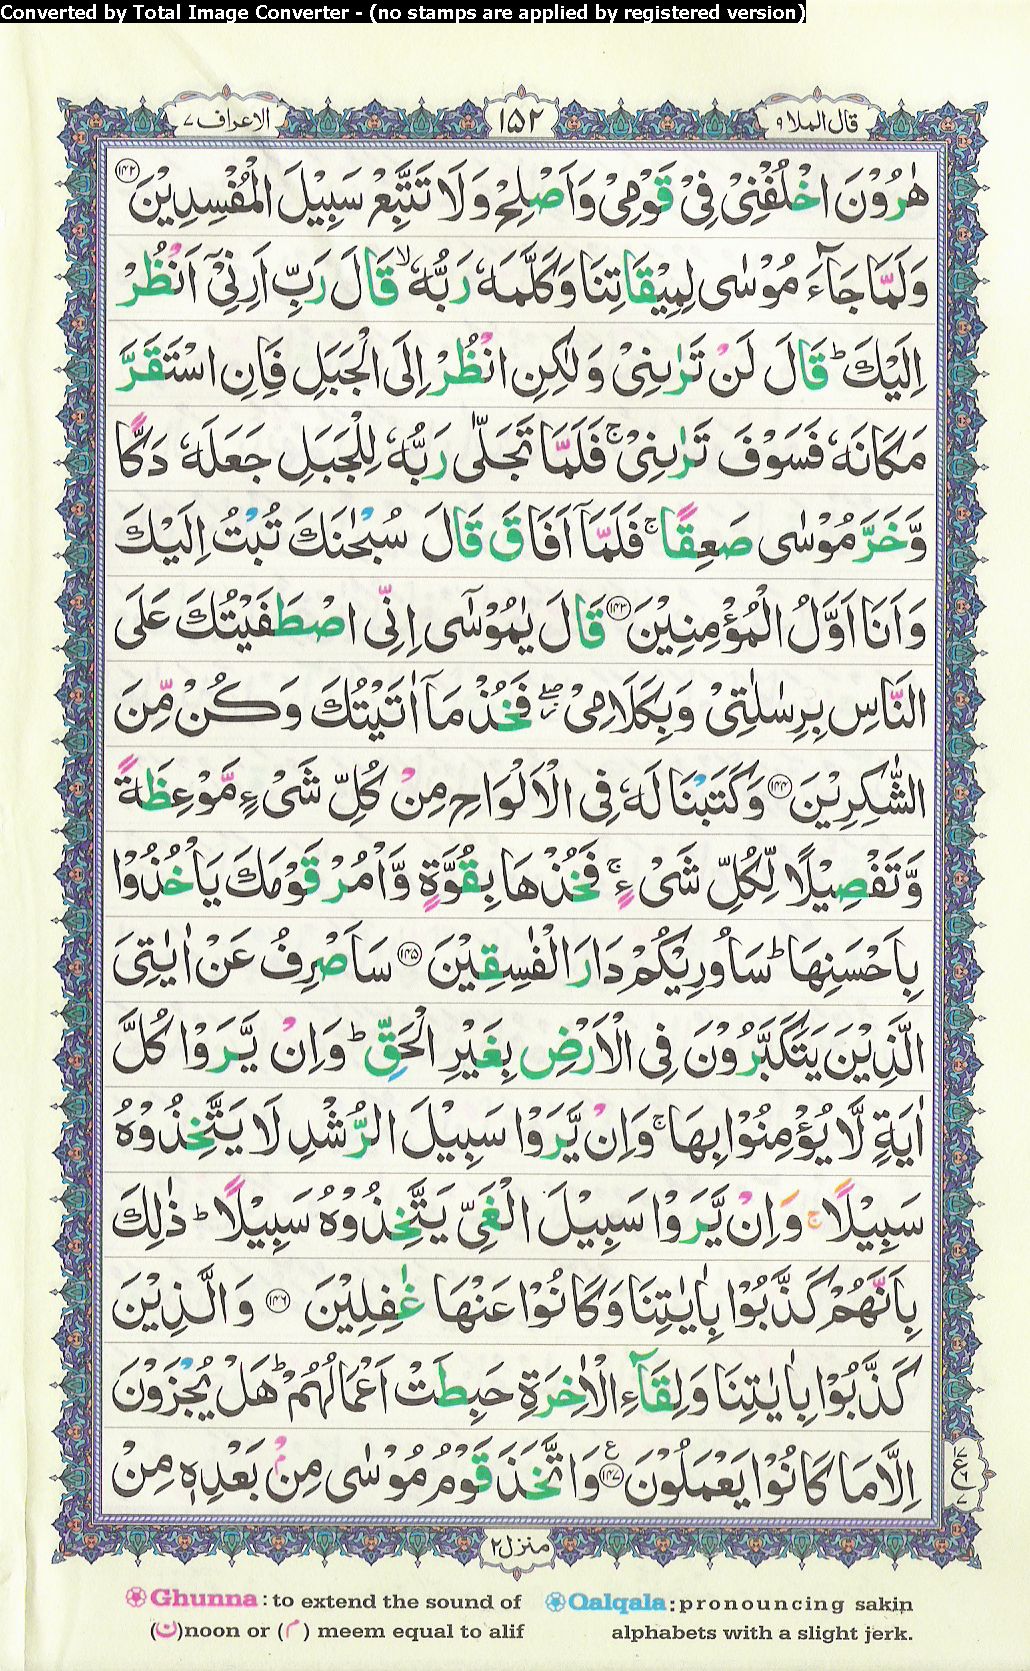 Converted by Total Image Converter - (no stamps are applied by registered version)
قال الملا ٩ ١٥٢ الاعراف ٧
هٰرُوْنَ اخْلُفْنِیْ فِیْ قَوْمِیْ وَاَصْلِحْ وَلَا تَتَّبِعْ سَبِیْلَ الْمُفْسِدِیْنَ ﴿۱۴۲﴾
وَلَمَّا جَآءَ مُوْسٰی لِمِیْقَاتِنَا وَكَلَّمَهٗ رَبُّهٗ ۙ قَالَ رَبِّ اَرِنِیْۤ اَنْظُرْ
اِلَیْكَ ؕ قَالَ لَنْ تَرٰىنِیْ وَلٰكِنِ انْظُرْ اِلَی الْجَبَلِ فَاِنِ اسْتَقَرَّ
مَكَانَهٗ فَسَوْفَ تَرٰىنِیْ ۚ فَلَمَّا تَجَلّٰی رَبُّهٗ لِلْجَبَلِ جَعَلَهٗ دَكًّا
وَّخَرَّ مُوْسٰی صَعِقًا ۚ فَلَمَّاۤ اَفَاقَ قَالَ سُبْحٰنَكَ تُبْتُ اِلَیْكَ
وَاَنَا اَوَّلُ الْمُؤْمِنِیْنَ ﴿۱۴۳﴾ قَالَ یٰمُوْسٰۤی اِنِّی اصْطَفَیْتُكَ عَلَی
النَّاسِ بِرِسٰلٰتِیْ وَبِكَلَامِیْ ۖ فَخُذْ مَاۤ اٰتَیْتُكَ وَكُنْ مِّنَ
الشّٰكِرِیْنَ ﴿۱۴۴﴾ وَكَتَبْنَا لَهٗ فِی الْاَلْوَاحِ مِنْ كُلِّ شَیْءٍ مَّوْعِظَةً
وَّتَفْصِیْلًا لِّكُلِّ شَیْءٍ ۚ فَخُذْهَا بِقُوَّةٍ وَّاْمُرْ قَوْمَكَ یَاْخُذُوْا
بِاَحْسَنِهَا ؕ سَاُورِیْكُمْ دَارَ الْفٰسِقِیْنَ ﴿۱۴۵﴾ سَاَصْرِفُ عَنْ اٰیٰتِیَ
الَّذِیْنَ یَتَكَبَّرُوْنَ فِی الْاَرْضِ بِغَیْرِ الْحَقِّ ؕ وَاِنْ یَّرَوْا كُلَّ
اٰیَةٍ لَّا یُؤْمِنُوْا بِهَا ۚ وَاِنْ یَّرَوْا سَبِیْلَ الرُّشْدِ لَا یَتَّخِذُوْهُ
سَبِیْلًا ۚ وَاِنْ یَّرَوْا سَبِیْلَ الْغَیِّ یَتَّخِذُوْهُ سَبِیْلًا ؕ ذٰلِكَ
بِاَنَّهُمْ كَذَّبُوْا بِاٰیٰتِنَا وَكَانُوْا عَنْهَا غٰفِلِیْنَ ﴿۱۴۶﴾ وَالَّذِیْنَ
كَذَّبُوْا بِاٰیٰتِنَا وَلِقَآءِ الْاٰخِرَةِ حَبِطَتْ اَعْمَالُهُمْ ؕ هَلْ یُجْزَوْنَ
اِلَّا مَا كَانُوْا یَعْمَلُوْنَ ﴿۱۴۷﴾ ع وَاتَّخَذَ قَوْمُ مُوْسٰی مِنْۢ بَعْدِهٖ مِنْ
منزل ٢
Ghunna: to extend the sound of (ن)noon or (م) meem equal to alif
Qalqala: pronouncing sakin alphabets with a slight jerk.